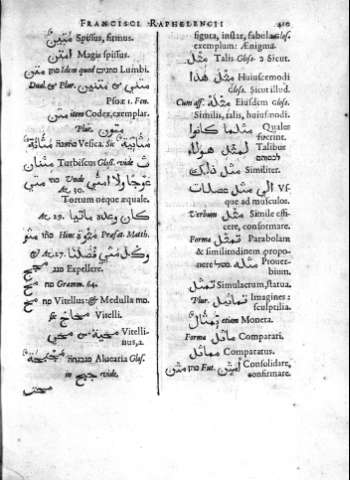 FRANCISCI RAPHELENGII
متين Spissus, firmus.
امتن Magis spissus.
متن Idem quod Lumbi.
Dual. & Plur. متون & متني
Psoæ 1. Fen.
متن item Codex, exemplar.
Plur. متون
مثانة Vesica. Sic
مثنان Turbiscus Glos. vide ث
Vnde عوجا ولا امتي
Ac. 20.
Tortum neque æquale.
Ac. 19. كان وعده ماتيا
متو Hinc متوه Præfat. Matth.
& Ac. 27.
مج Expellere.
مج Gramm. 64.
مح Vitellus: & Medulla
محاح Vitelli.
Vitelli-
nus, a.
Aluearia Glos.
in جبح vide.
محتد
410
figura, instar, fabula Glos.
exemplum: Ænigma.
مثل Talis Glos. 2 Sicut.
مثل هذا Huiuscemodi
Glos. Sicut illud.
Cum aff. مثله Eiusdem Glos.
Similis, talis, huiusmodi.
مثلما كانوا Quales
fuerint.
لمثل هولاء Talibus
مثل ذلك Similiter.
الي مثل عضلات Vs-
que ad musculos.
Verbum مثل Simile effi-
cere, conformare.
Forma تمثل Parabolam
& similitudinem propo-
nere مثله Prouer-
bium.
تمثل Simulacrum, statua.
Plur. تماثيل Imagines:
sculptilia.
تمثال etiam Moneta.
Forma ماثل Comparari.
مماثل Comparatus.
متن Fut. امتن Consolidare,
confirmare.